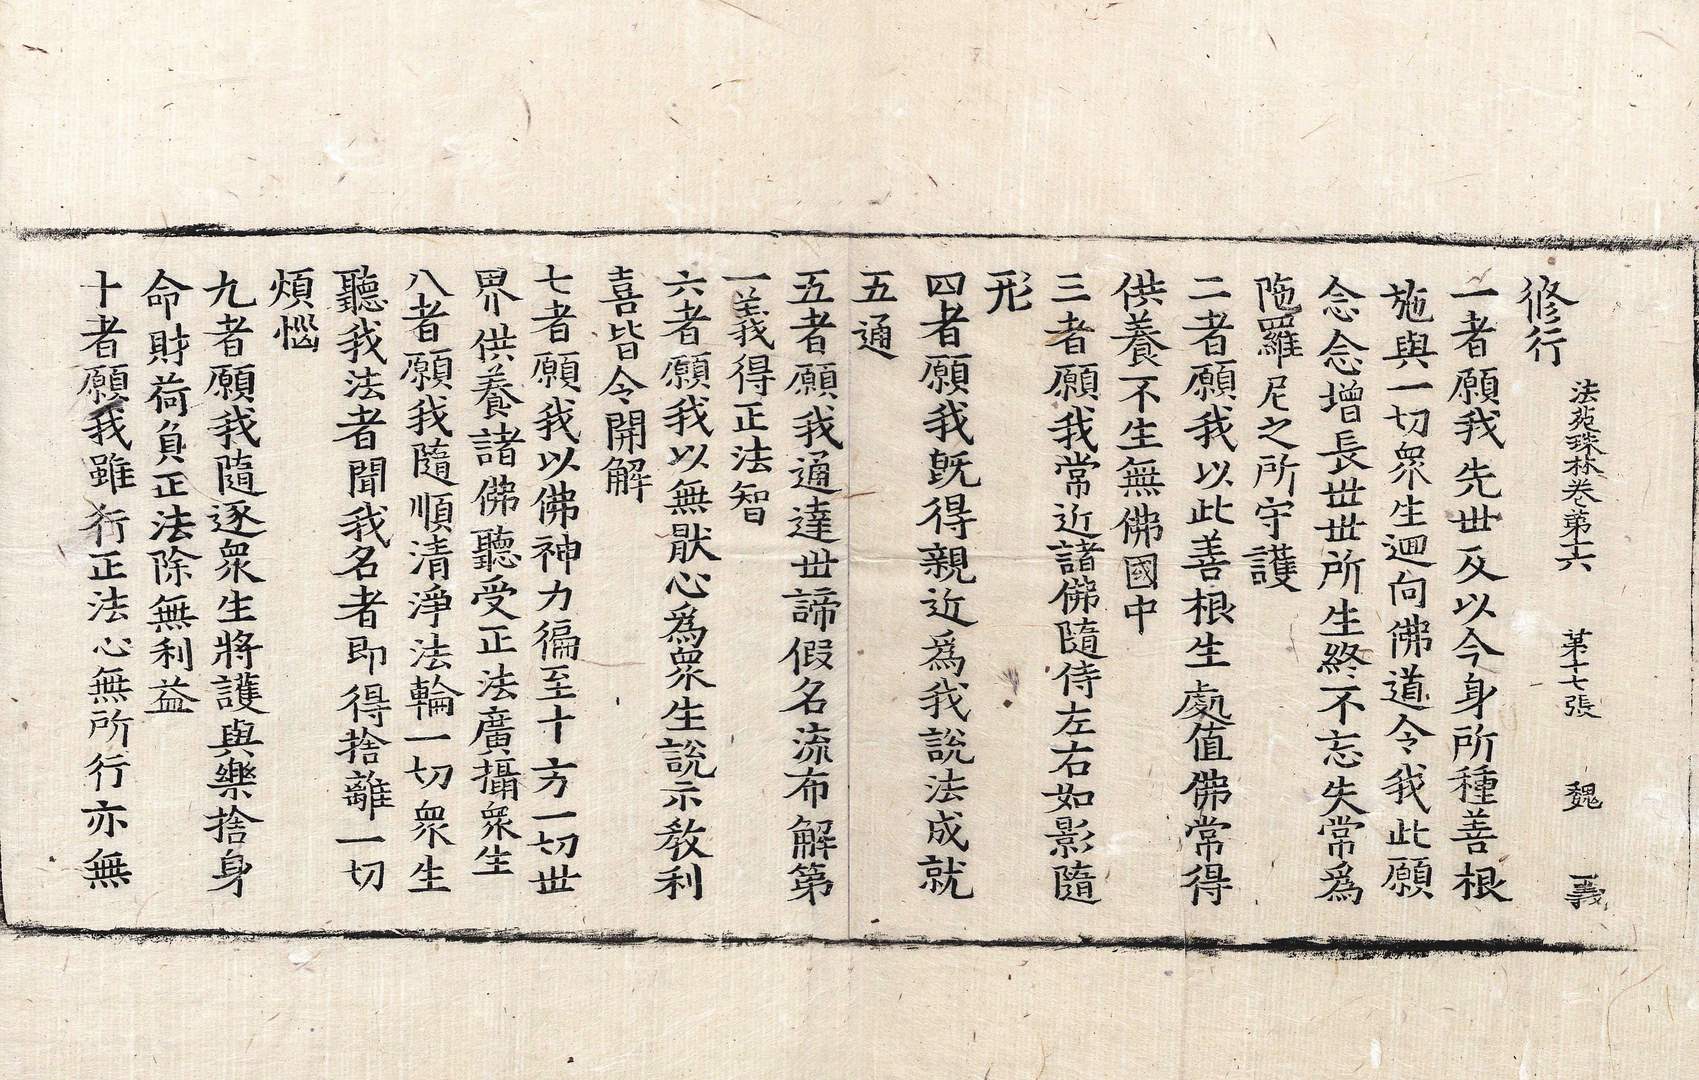 法苑珠林卷第六 第十七張 魏 義
修行
一者願我先世及以今身所種善根
施與一切衆生迴向佛道令我此願
念念增長世世所生終不忘失常爲
陁羅尼之所守護
二者願我以此善根生處值佛常得
供養不生無佛國中
三者願我常近諸佛隨侍左右如影隨
形
四者願我旣得親近爲我說法成就
五通
五者願我通達世諦假名流布解第
一義得正法智
六者願我以無猒心爲衆生說示教利
喜皆令開解
七者願我以佛神力徧至十方一切世
界供養諸佛聽受正法廣攝衆生
八者願我隨順清淨法輪一切衆生
聽我法者聞我名者即得捨離一切
煩惱
九者願我隨逐衆生將護與樂捨身
命財荷負正法除無利益
十者願我雖行正法心無所行亦無